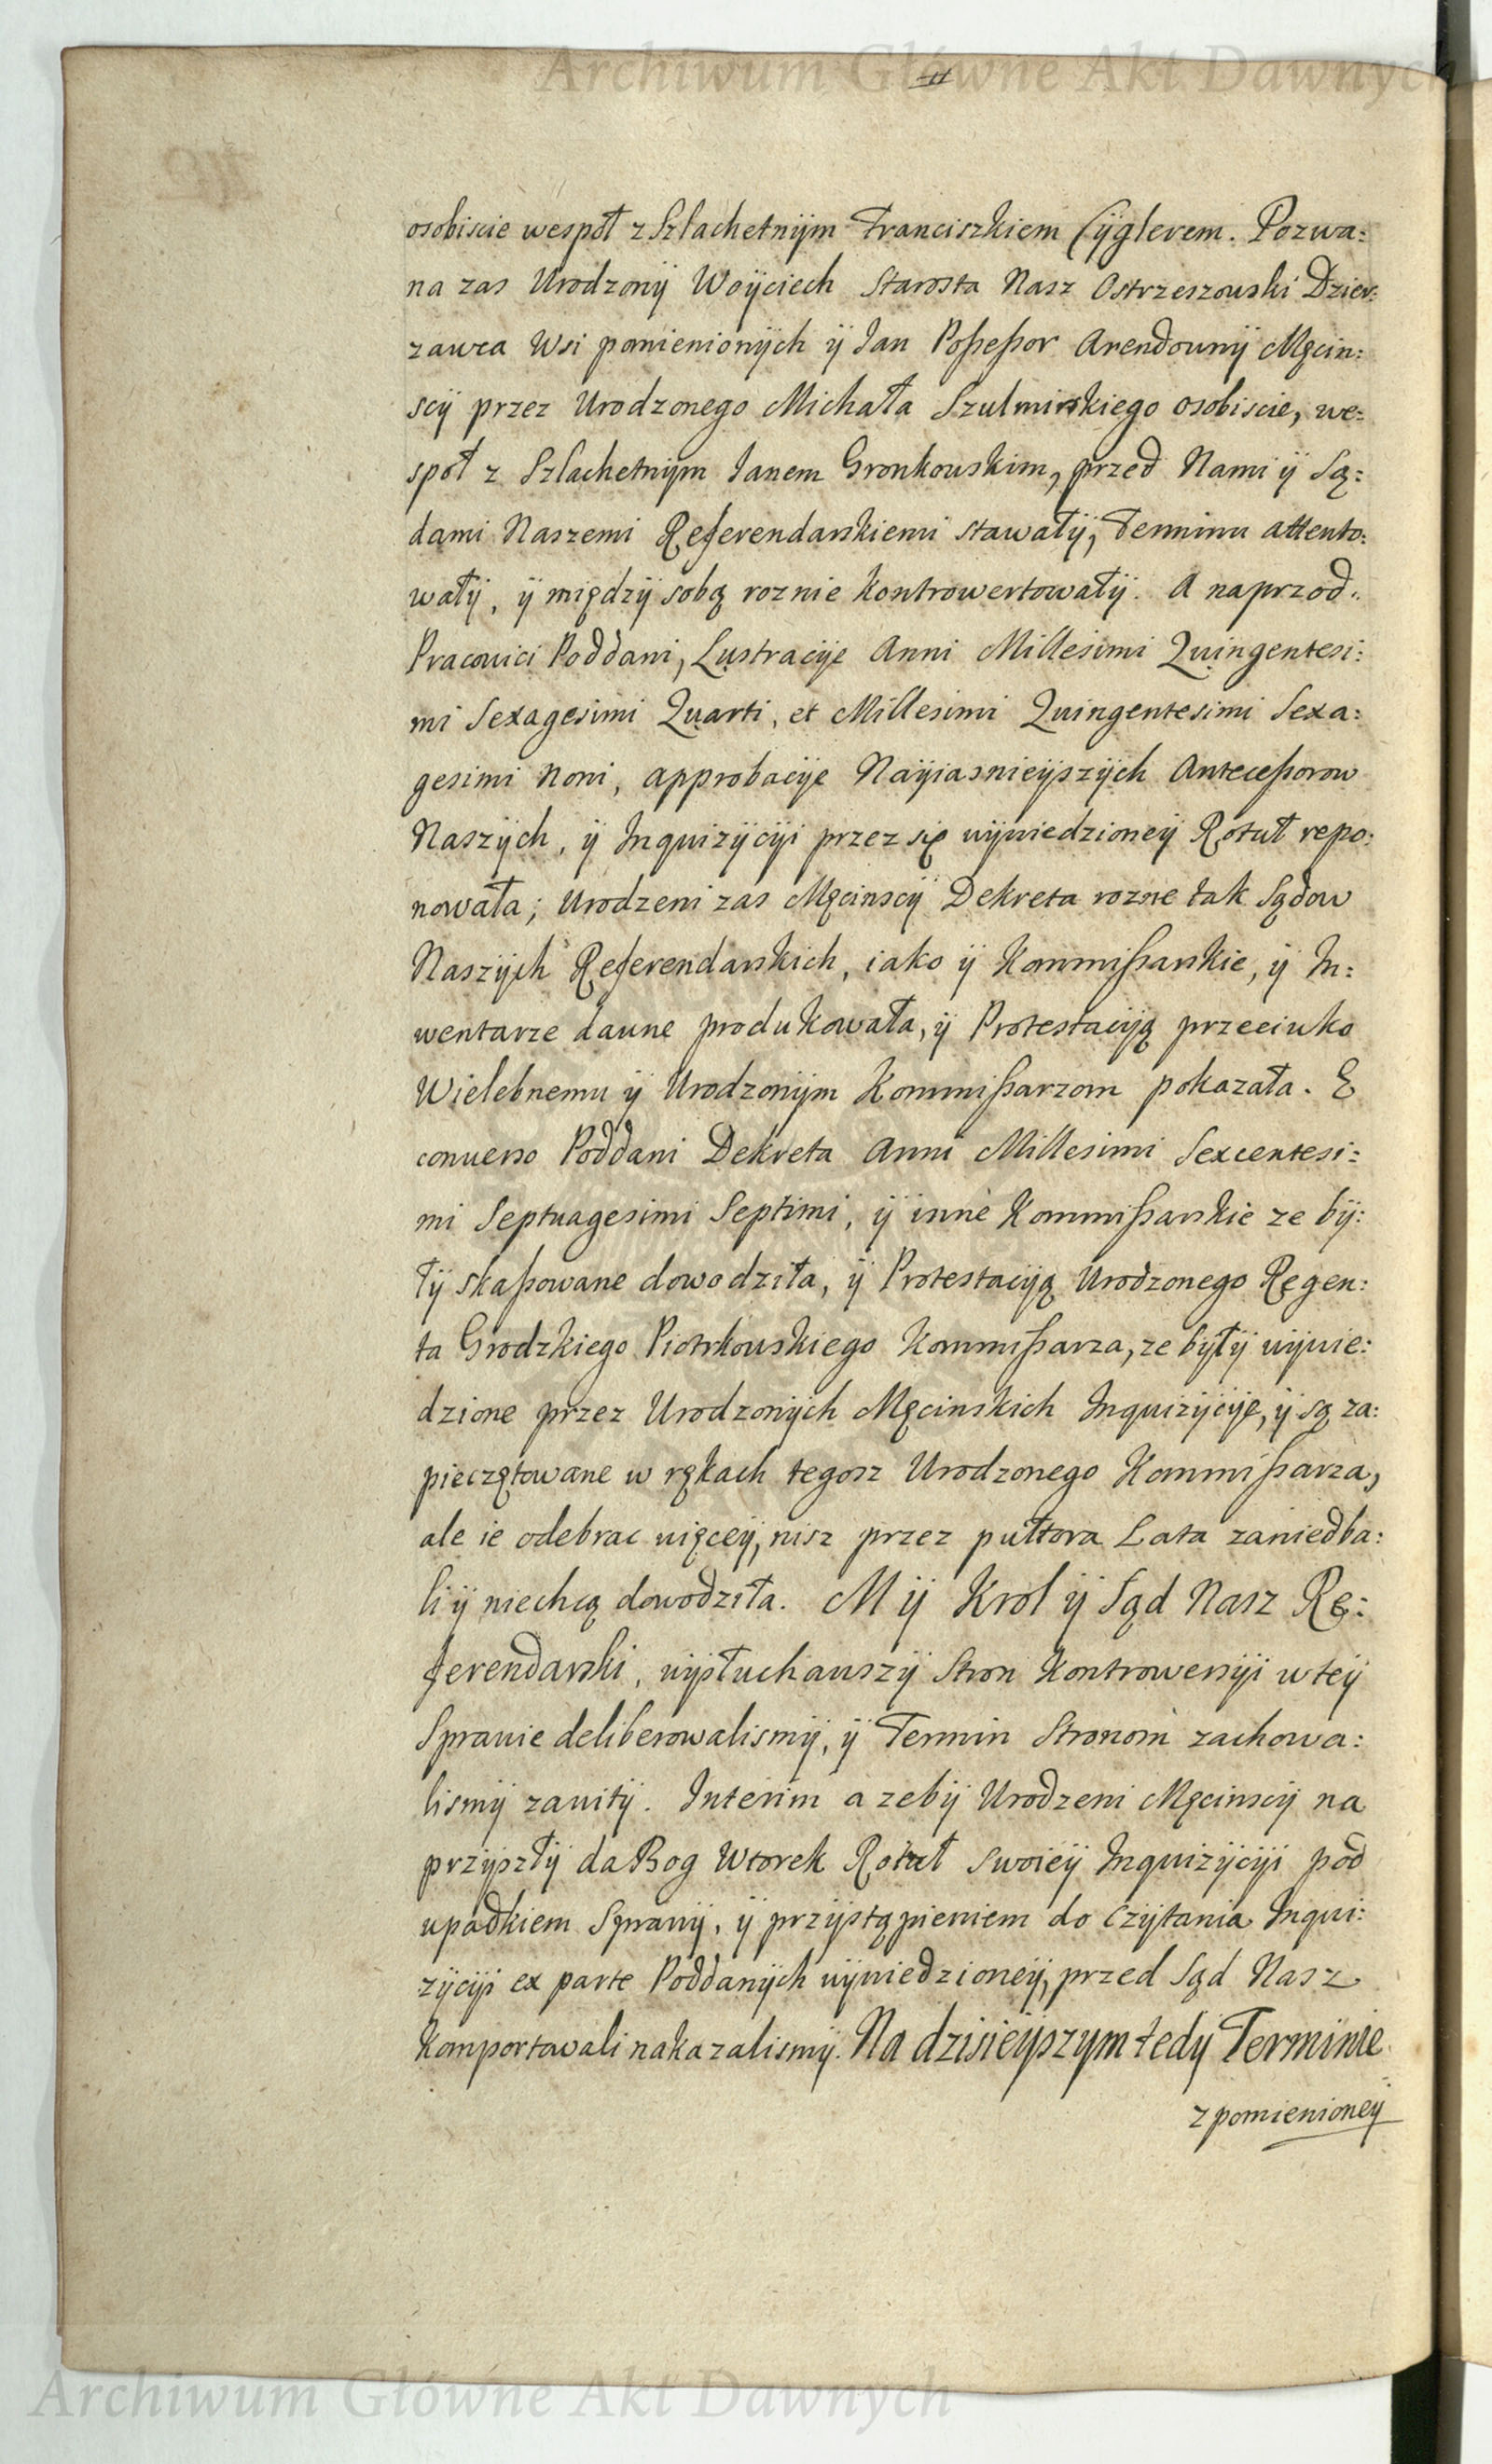 Archiwum Główne Akt Dawnych
osobiscie wespoł z Szlachetnÿm Franciszkiem Cÿglerem. Pozwa:
na zas Urodzonÿ Woÿciech Starosta Nasz Ostrzeszowski Dzier:
zawca Wsi pomienionÿch ÿ Jan Poßeßor Arendownÿ Męcin:
scÿ przez Urodzonego Michała Szulminskiego osobiscie, we:
społ z Szlachetnÿm Janem Gronkowskim, przed Nami ÿ Są:
dami Naszemi Referendarskiemi stawałÿ, Terminu attento:
wałÿ, ÿ międzÿ sobą roznie kontrowertowałÿ. A naprzod
Pracowici Poddani, Lustracÿe Anni Millesimi Quingentesi:
mi Sexagesimi Quarti, et Millesimi Quingentesimi Sexa:
gesimi Noni, approbacÿe Naÿiasnieÿszÿch Anteceßorow
Naszÿch, ÿ Inquizÿcÿi przez się wÿwiedzioneÿ Rotuł repo:
nowała; Urodzeni zas Męcinscÿ Dekreta rozne tak Sądow
Naszÿch Referendarskich, iako ÿ Kommißarskie, ÿ In:
wentarze dawne produkowała, ÿ Protestacÿą przeciwko
Wielebnemu ÿ Urodzonÿm Kommißarzom pokazała. E
converso Poddani Dekreta Anni Millesimi Sexcentesi:
mi Septuagesimi Septimi, ÿ inne Kommißarskie ze bÿ:
łÿ skaßowane dowodziła, ÿ Protestacÿą Urodzonego Regen:
ta Grodzkiego Piotrkowskiego Kommißarza, ze bÿłÿ wÿwie:
dzione przez Urodzonÿch Męcinskich Inquizÿcÿe, ÿ są za:
pieczętowane w rękach tegosz Urodzonego Kommißarza,
ale ie odebrac więceÿ, nisz przez pułtora Lata zaniedba:
li ÿ niechcą dowodziła. Mÿ Krol ÿ Sąd Nasz Re:
ferendarski, wÿsłuchawszÿ Stron Kontrowersÿi w teÿ
Sprawie deliberowalismÿ, ÿ Termin Stronom zachowa:
lismÿ zawitÿ. Interim azebÿ Urodzeni Męcinscÿ na
przÿszłÿ da Bog Wtorek Rotuł swoieÿ Inquizÿcÿi pod
upadkiem Sprawÿ, ÿ przÿstąpieniem do Czÿtania Inqui:
zÿcÿi ex parte Poddanÿch wÿwiedzioneÿ, przed Sąd Nasz
komportowali nakazalismÿ. Na dzisieÿszym tedÿ Terminie
z pomienioneÿ
Archiwum Główne Akt Dawnych